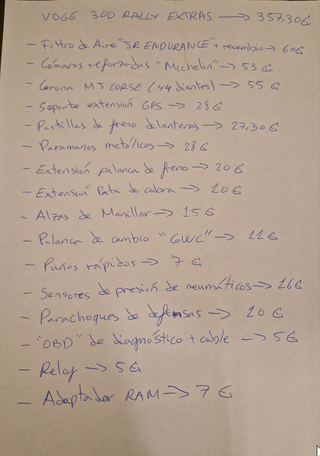 VOGE 300 RALLY EXTRAS → 357,30€
- Filtro de Aire "JR ENDURANCE" + recambio → 60€
- Cámaras reforzadas "Michelin" → 53 €
- Corona MJ CORSE (44 dientes) → 55 €
- Soporte extensión GPS → 28€
- Pastillas de freno delanteras → 27,30€
- Paramanos metálicos → 28€
- Extensión palanca de freno → 20€
- Extensión Pata de cabra → 10€
- Alzas de Manillar → 15€
- Palanca de cambio "GWC" → 11€
- Puños rápidos → 7 €
- Sensores de presión de neumáticos → 16€
- Parachoques de defensas → 10€
- "OBD" de diagnóstico + cable → 5€
- Reloj → 5€
- Adaptador RAM → 7 €